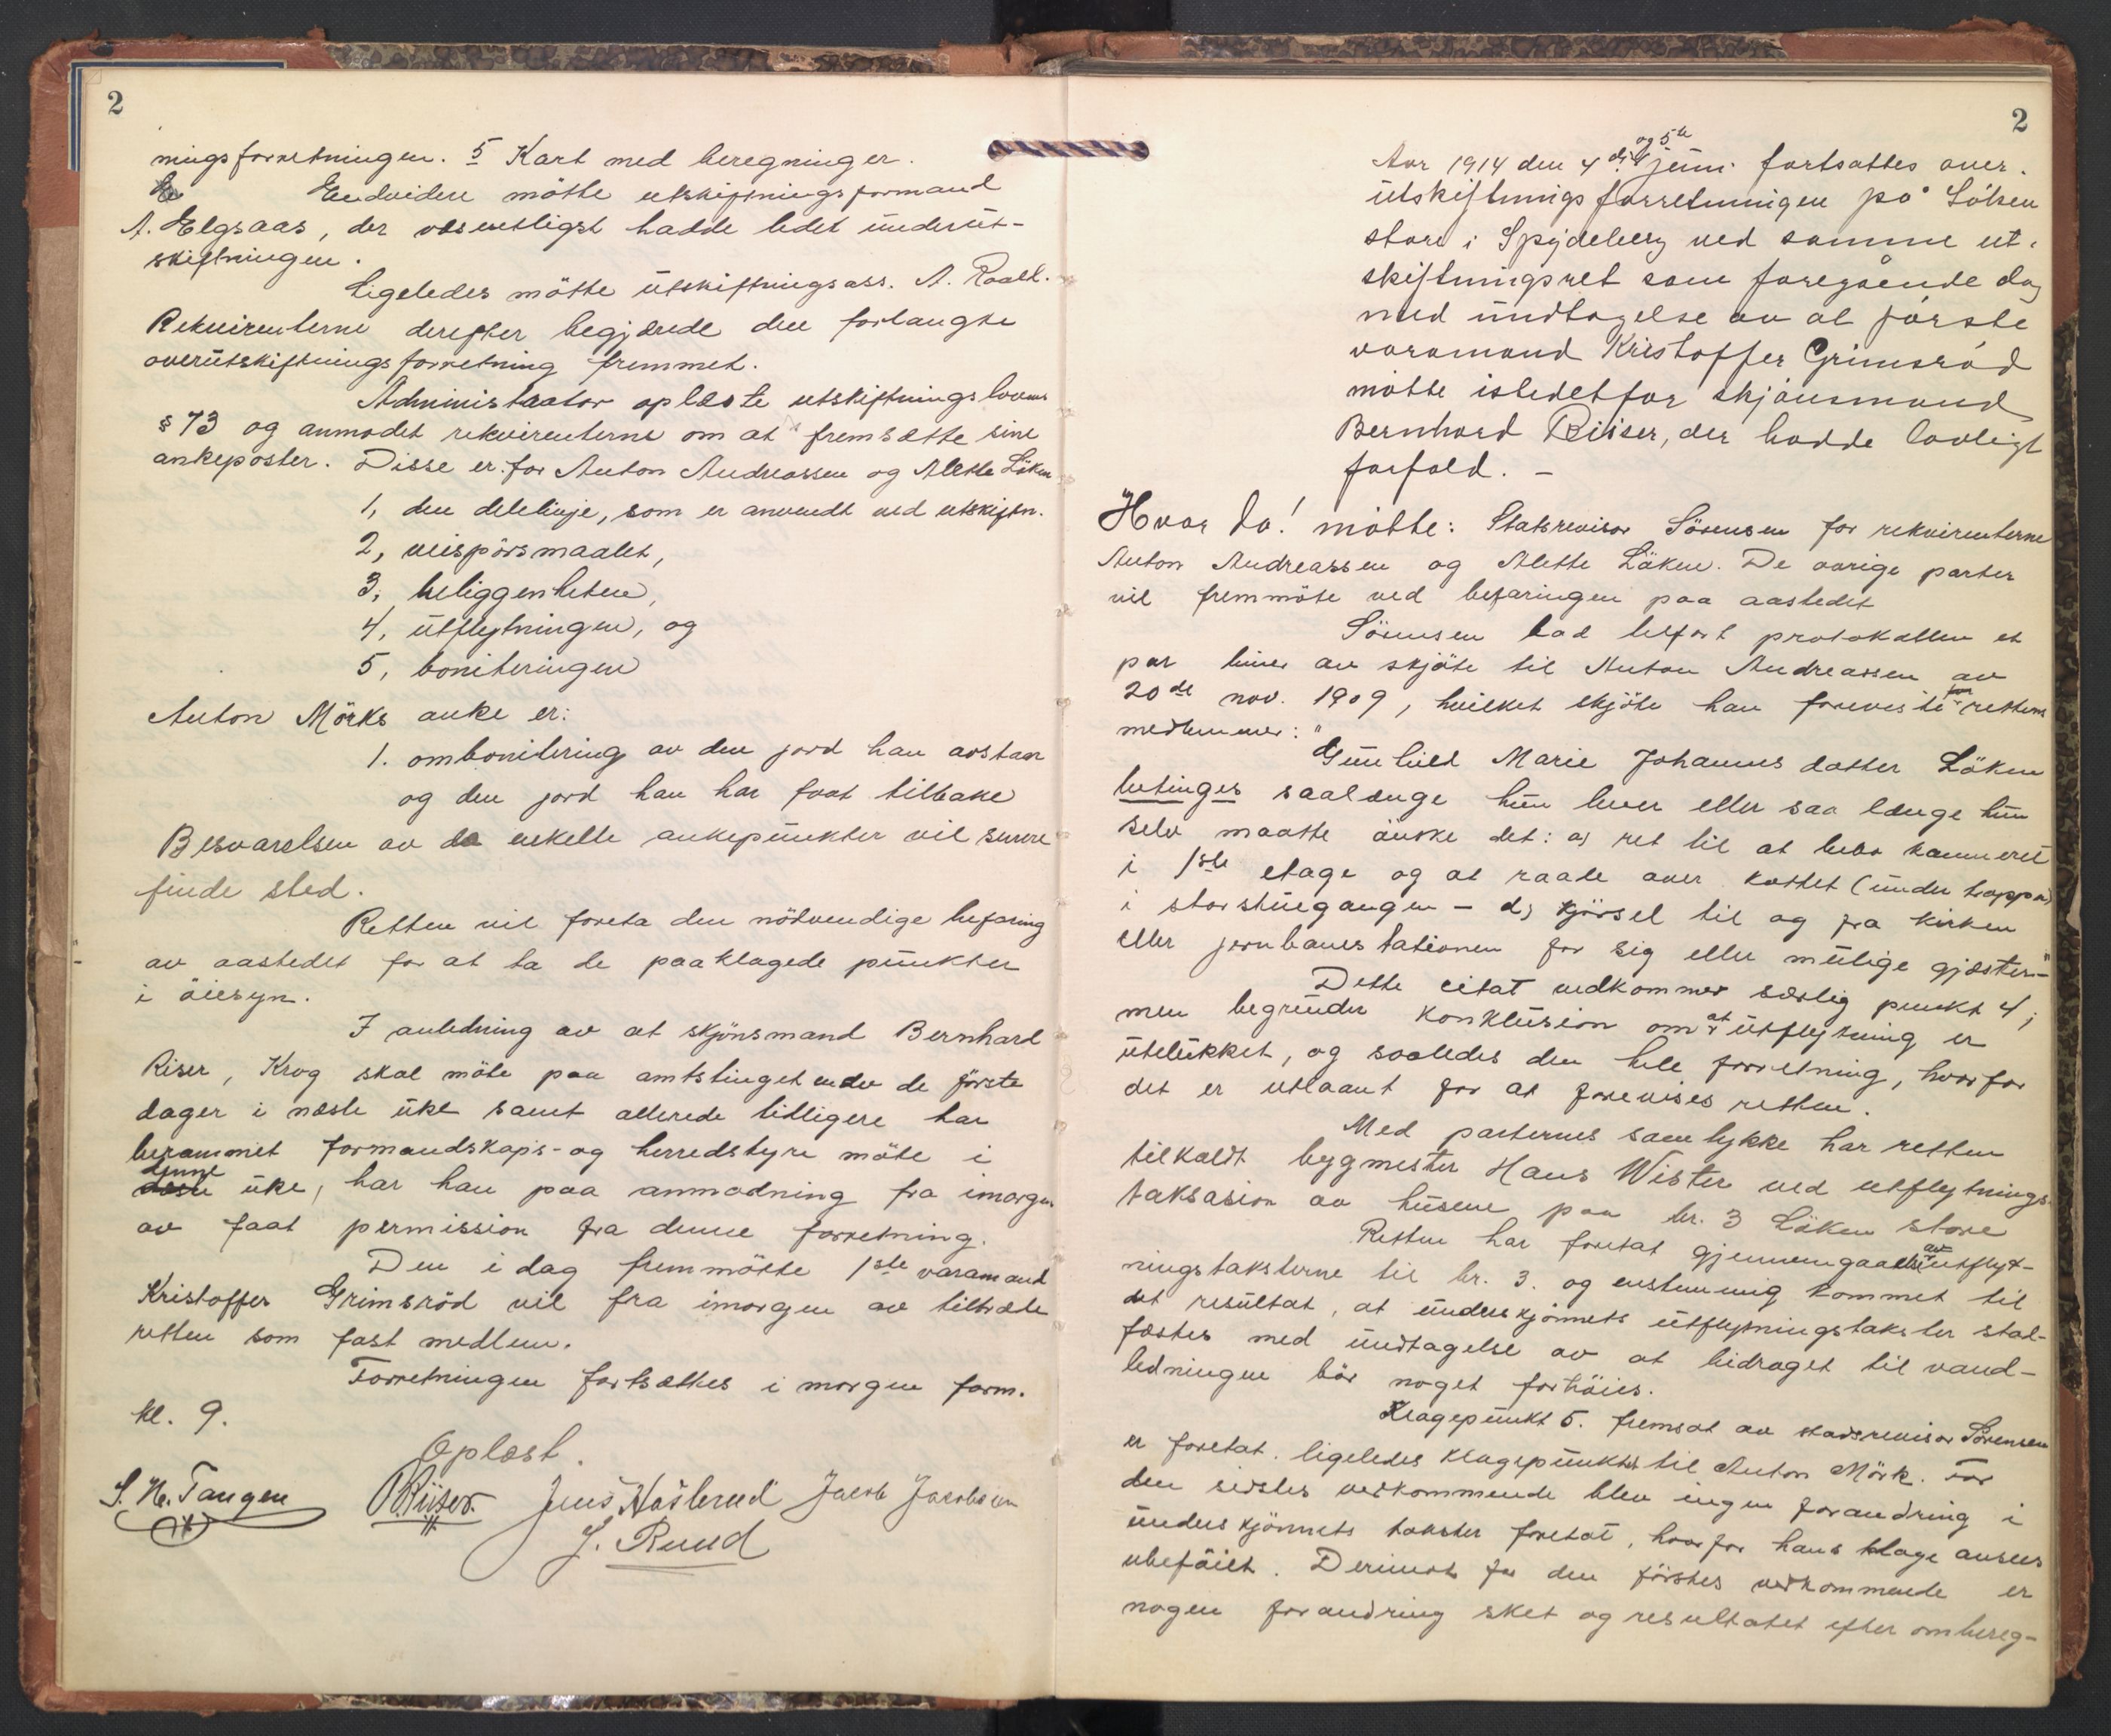 2
ningsforretningen. 5 Kart med beregninger.
Endvidere mötte utskiftningsformand
A. Elgsaas, der væsentligst hadde ledet underut-
skiftningen.
Ligeledes mötte utskiftningsass. A.
Rekvirenterne derefter begjærede den forlangte
overutskiftningsforretning fremmet.
Administrator oplæste utskiftningslovens
§ 73 og anmodet rekvirenterne om at fremsætte sine
ankeposter. Disse er for Anton Andreassen og Alette Löken
1, den delelinje, som er anvendt ved utskiftn.
2, veispörsmaalet,
3, beliggenheten,
4, utflytningen, og
5, boniteringen
Anton Mörks anke er:
1. ombonitering av den jord han avstaar
og den jord han har faat tilbake
Besvarelsen av de enkelte ankepunkter vil senere
finde sted.
Retten vil foreta den nödvendige befaring
av aastedet for at ta de paaklagede punkter
i öiesyn.
I anledning av at skjönsmand Bernhard
Riser, Krog skal möte paa amtstinget under de förste
dager i næste uke samt allerede tidligere har
berammet formandskaps- og herredstyre möte i
denne
uke, har han paa anmodning fra imorgen
av faat permission fra denne forretning.
Den i dag fremmötte 1ste varamand
Kristoffer Grimsröd vil fra imorgen av tiltræde
retten som fast medlem.
Forretningen fortsættes i morgen form.
kl. 9.
Oplæst.
S. H. Tangen B. Riiser Jens Haslerud Jacob Jacobsen
J. Ruud
2
og 5te
Aar 1914 den 4de juni fortsattes over-
utskiftningsforretningen på Löken
store i Spydeberg ved samme ut-
skiftningsret som foregående dag
med undtagelse av at förste
varamand Kristoffer Grimsröd
mötte istedetfor skjönsmand
Bernhard Riiser, der hadde lovligt
forfald. -
Hvor da! mötte: Statsrevisor Sörensen for rekvirenterne
Anton Andreassen og Alette Löken. De övrige parter
vil fremmöte ved befaringen paa aastedet
Sörensen bad tilfört protokollen et
par linier av skjöte til Anton Andreassen av
20de nov. 1909, hvilket skjöte han foreviste for rettens
medlemmer: "
Gunhild Marie Johannes datter Löken
betinges saalænge hun lever eller saa længe hun
selv maatte önske det: a) ret til at bebo kammeret
i 1ste etage og at raade over kottet (under trappen)
i storstuegangen - d) kjörsel til og fra kirken
eller jernbanestationen for sig eller mulige gjæster -"
Dette citat vedkommer særlig punkt 4;
men begrunder konklusion om at utflytning er
utelukket, og saaledes den hele forretning, hvorfor
det er utlaant for at forevises retten.
Med parternes samtykke har retten
tilkaldt bygmester Hans Wister ved utflytnings-
taksasion av husene paa br. 3 Löken store
Retten har foretat gjennemgaaelse av utflyt-
ningstaksterne til br. 3. og enstemmig kommet til
det resultat, at underskjönnets utflytningstakster stad-
fæstes med undtagelse av at bidraget til vand-
ledningen bör noget forhöies.
Klagepunkt 5. fremsat av stadsrevisor Sörensen
er foretat. ligeledes klagepunktet til Anton Mörk. For
den sidstes vedkommende blev ingen forandring i
underskjönnets takster foretat, hvorfor hans klage ansees
ubeföiet. Derimot for den förstes vedkommende er
nogen forandring sket og resultatet efter ombereg-